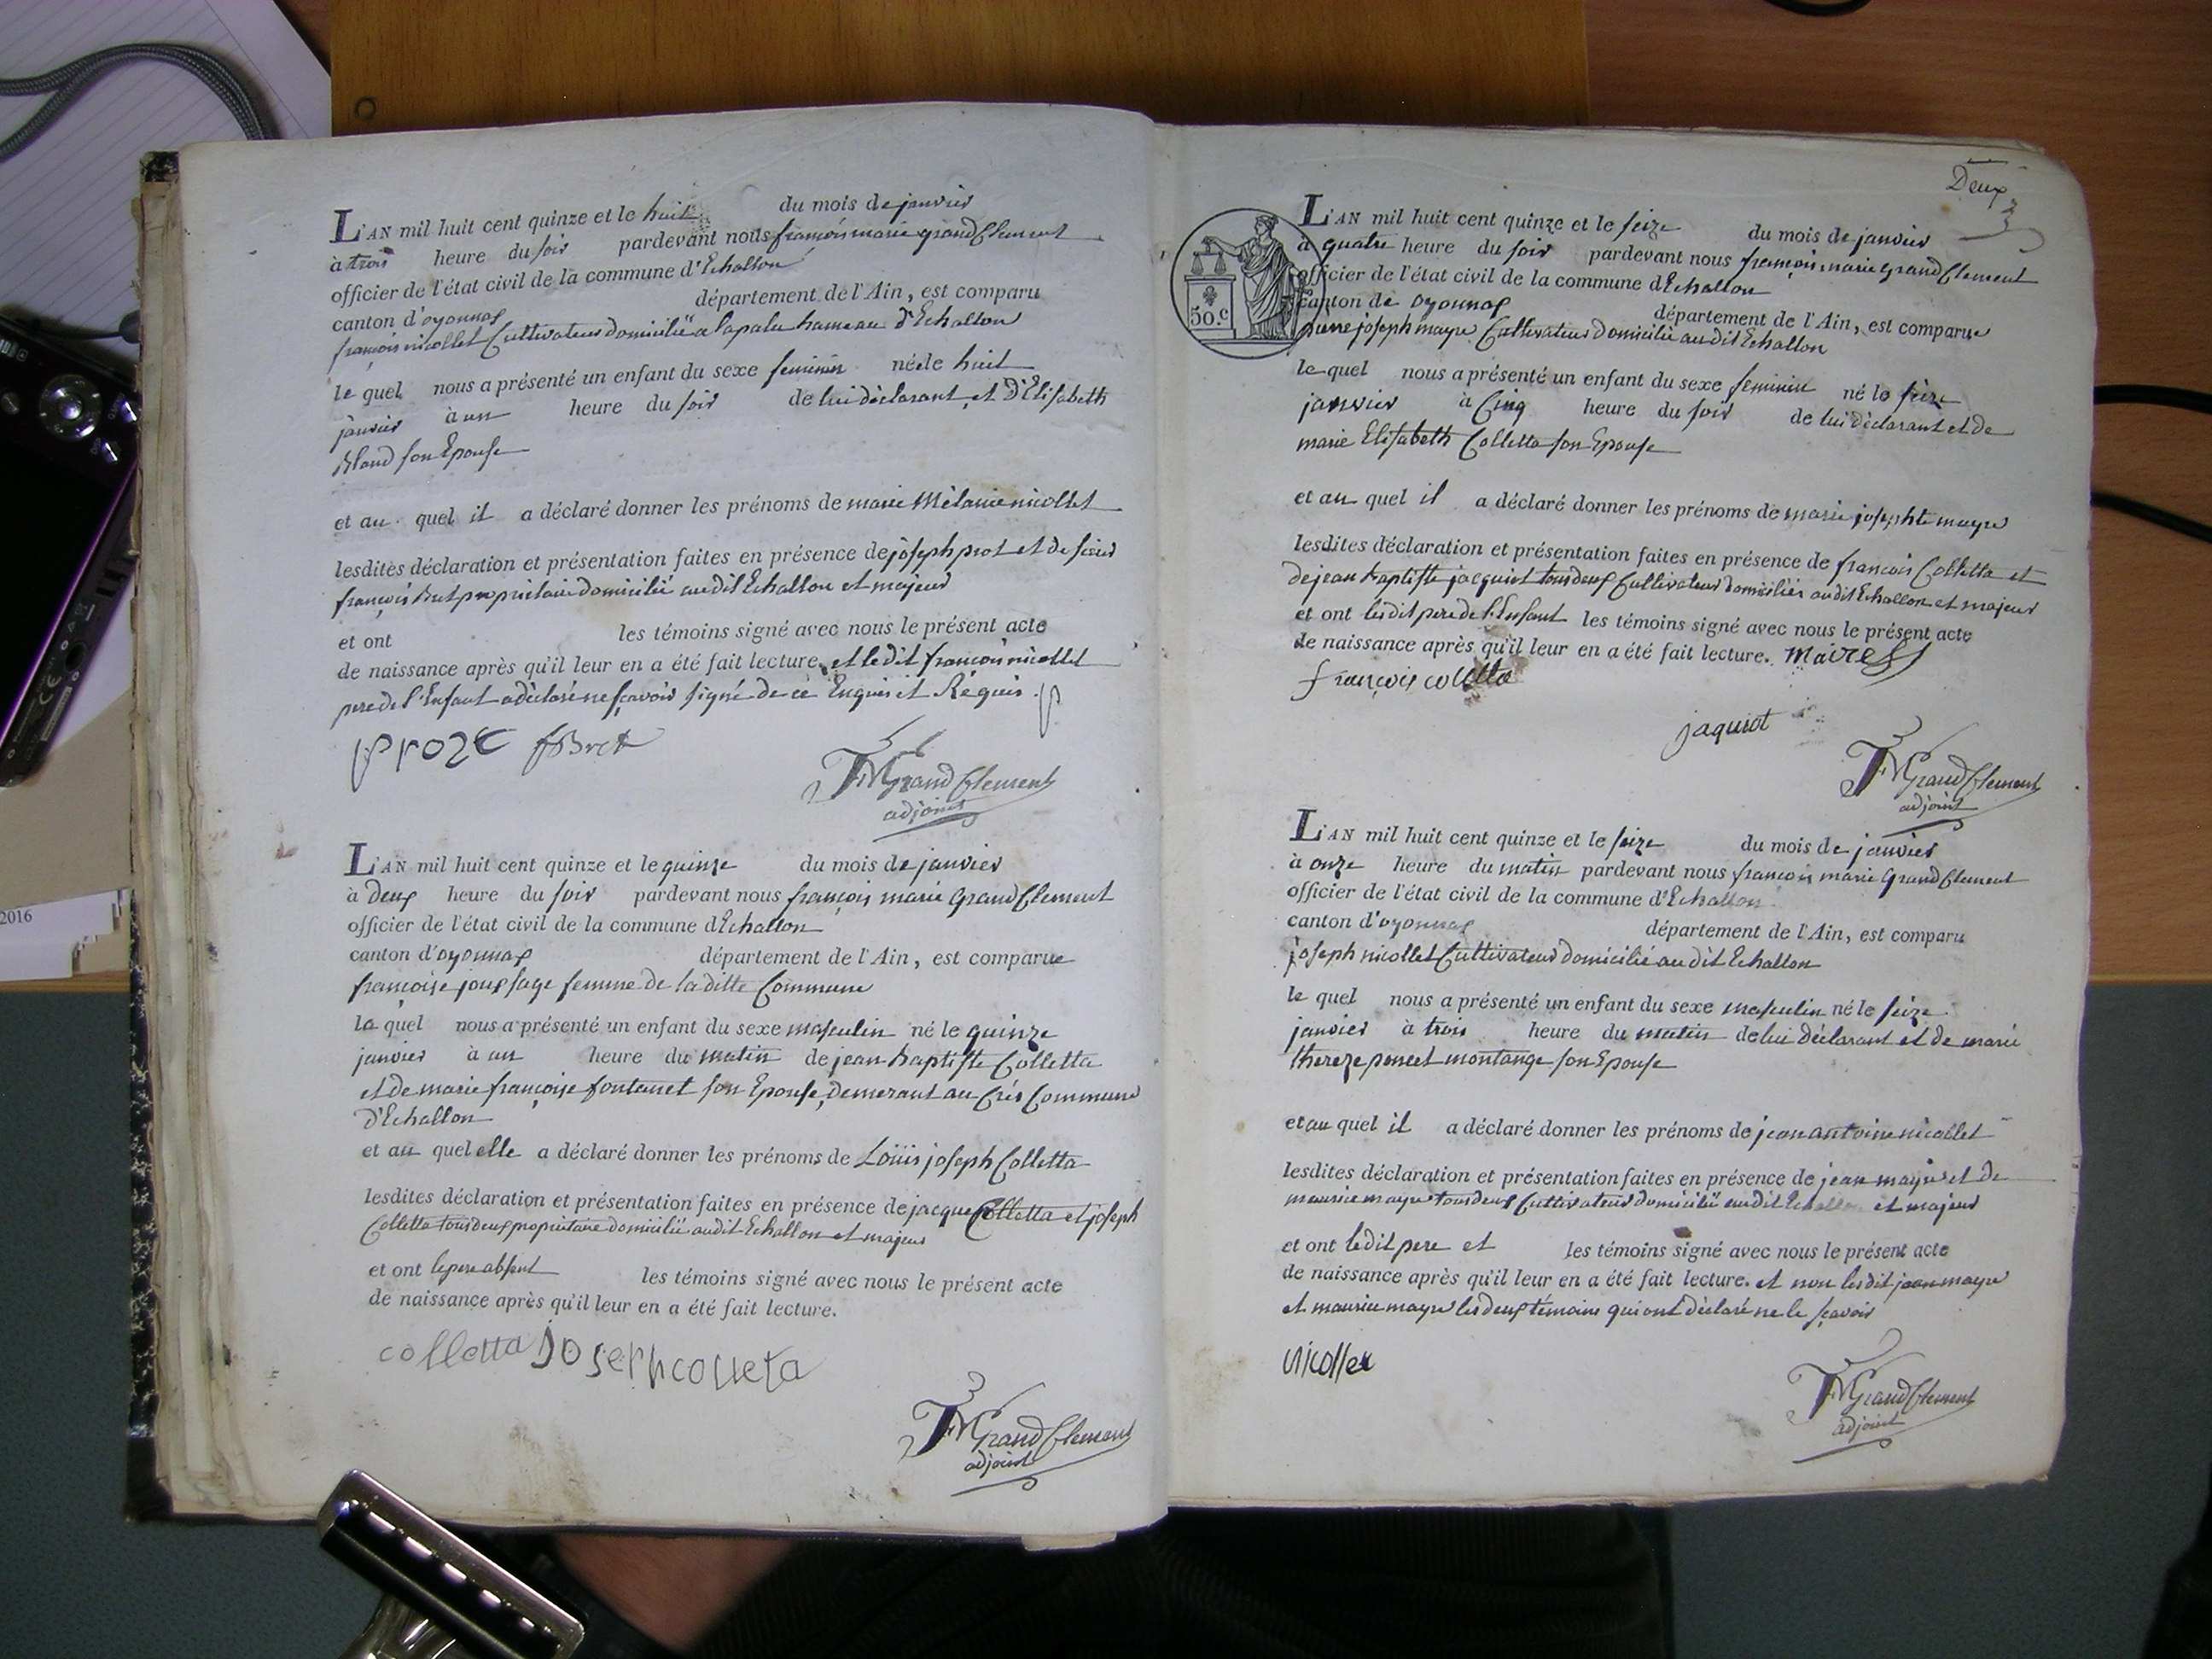 L'AN mil huit cent quinze et le huit du mois de janvier
à trois heure du soir pardevant nous françois marie grand Clement
officier de l'état civil de la commune d'Echallon
canton d'oyonnax département de l'Ain, est comparu
françois nicollet Cultivateur domicilié a lapalu hameau d'Echallon
le quel nous a présenté un enfant du sexe feminin né le huit
janvier à un heure du soir de lui déclarant et D'Elisabeth
Bland son Epouse
et au quel il a déclaré donner les prénoms de marie Mélanie nicollet
lesdites déclaration et présentation faites en présence de joseph prost et de sieur
françois Bret propriétaire domicilié audit Echallon et majeur
et ont les témoins signé avec nous le présent acte
de naissance après qu'il leur en a été fait lecture, et ledit françois nicollet
pere de l'Enfant a déclaré ne sçavoir signé de ce Enquis et Réquis
fBret
FM Grand Clement
adjoint
L'AN mil huit cent quinze et le quinze du mois de janvier
à deux heure du soir pardevant nous françois marie Grand Clement
officier de l'état civil de la commune d'Echallon
canton d'oyonnax département de l'Ain, est comparue
françoise joux sage femme de la ditte Commune
la quel nous a présenté un enfant du sexe masculin né le quinze
janvier à un heure du matin de jean Baptiste Colletta
et de marie françoise fontanet son Epouse, demerant au Crés Commune
D'Echallon
et au quel elle a déclaré donner les prénoms de Loüis joseph Colletta
lesdites déclaration et présentation faites en présence de jacque Colletta et joseph
Colletta tous deux proprietaire domicilié audit Echallon et majeur
et ont le pere absent les témoins signé avec nous le présent acte
de naissance après qu'il leur en a été fait lecture.
colletta Joseph colleta
FM Grand Clement
adjoint
Deux
L'AN mil huit cent quinze et le seize du mois de janvier
à quatre heure du soir pardevant nous françois marie Grand Clement
officier de l'état civil de la commune d'Echallon
canton de oyonnax département de l'Ain, est comparue
50.c
pierre joseph mayre Cultivateur domicilié audit Echallon
le quel nous a présenté un enfant du sexe feminin né le seize
janvier à Cinq heure du soir de lui déclarant et de
marie Elisabeth Colletta son Epouse
et au quel il a déclaré donner les prénoms de marie josephte mayre
lesdites déclaration et présentation faites en présence de françois Colletta et
de jean Baptiste jacquiot tous deux Cultivateur domiciliés audit Echallon et majeur
et ont lesdit pere de l'Enfant les témoins signé avec nous le présent acte
de naissance après qu'il leur en a été fait lecture. Maire
françois colletta
jaquiot
FM Grand Clement
adjoint
L'AN mil huit cent quinze et le seize du mois de janvier
à onze heure du matin pardevant nous françois marie Grand Clement
officier de l'état civil de la commune d'Echallon
canton d'oyonnax département de l'Ain, est comparu
joseph nicollet Cultivateur domicilié audit Echallon
le quel nous a présenté un enfant du sexe masculin né le seize
janvier à trois heure du matin de lui Déclarant et de marie
thereze poncet montange son Epouse
et au quel il a déclaré donner les prénoms de jean antoine nicollet
lesdites déclaration et présentation faites en présence de jean mayre et de
maurice mayre tous deux Cultivateur domicilié audit Echallon et majeur
et ont ledit pere et les témoins signé avec nous le présent acte
de naissance après qu'il leur en a été fait lecture. et non lesdit jean mayre
et maurice mayre les deux témoins qui ont déclaré ne le sçavoir
nicollet
FM Grand Clement
adjoint
2016